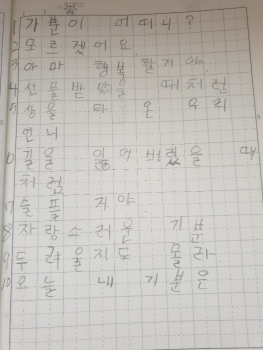 1 기분이 어떠니?
2 모르겠어요
3 아마 행복할거야
4 선물 받았을 때처럼
5 상을 타 온 우리
언니
6 길을 잃어버렸을 때
처럼
7 슬플 지야
8 자랑스러운 기분
9 두려울지도 몰라
10 오늘 내 기분은